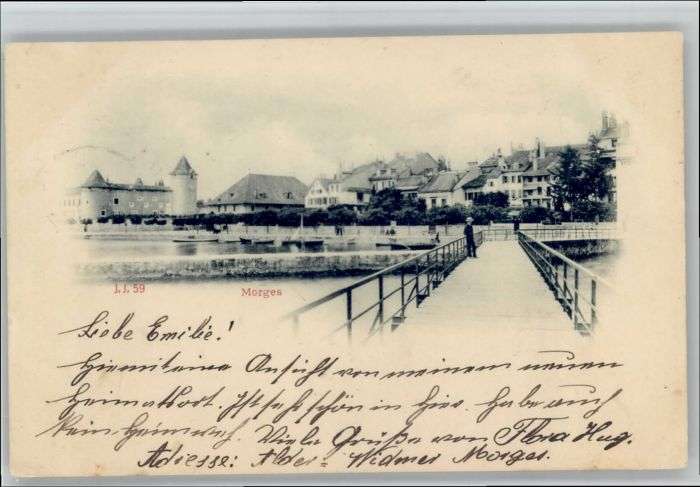 J.J. 59
Morges
Liebe Emilie!
Hiemit eine Ansicht von meinem neuen
Heimatort. Ist sehr schön in hier. habe auch
kein Heimweh. Viele Grüße von Flora Hug.
Adresse: Alder-Widmer Morges.